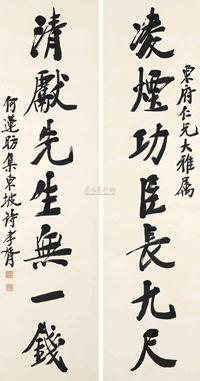 東府仁兄大雅屬
凌煙功臣長九尺
清獻先生無一錢
何蓮舫集東坡詩孝胥